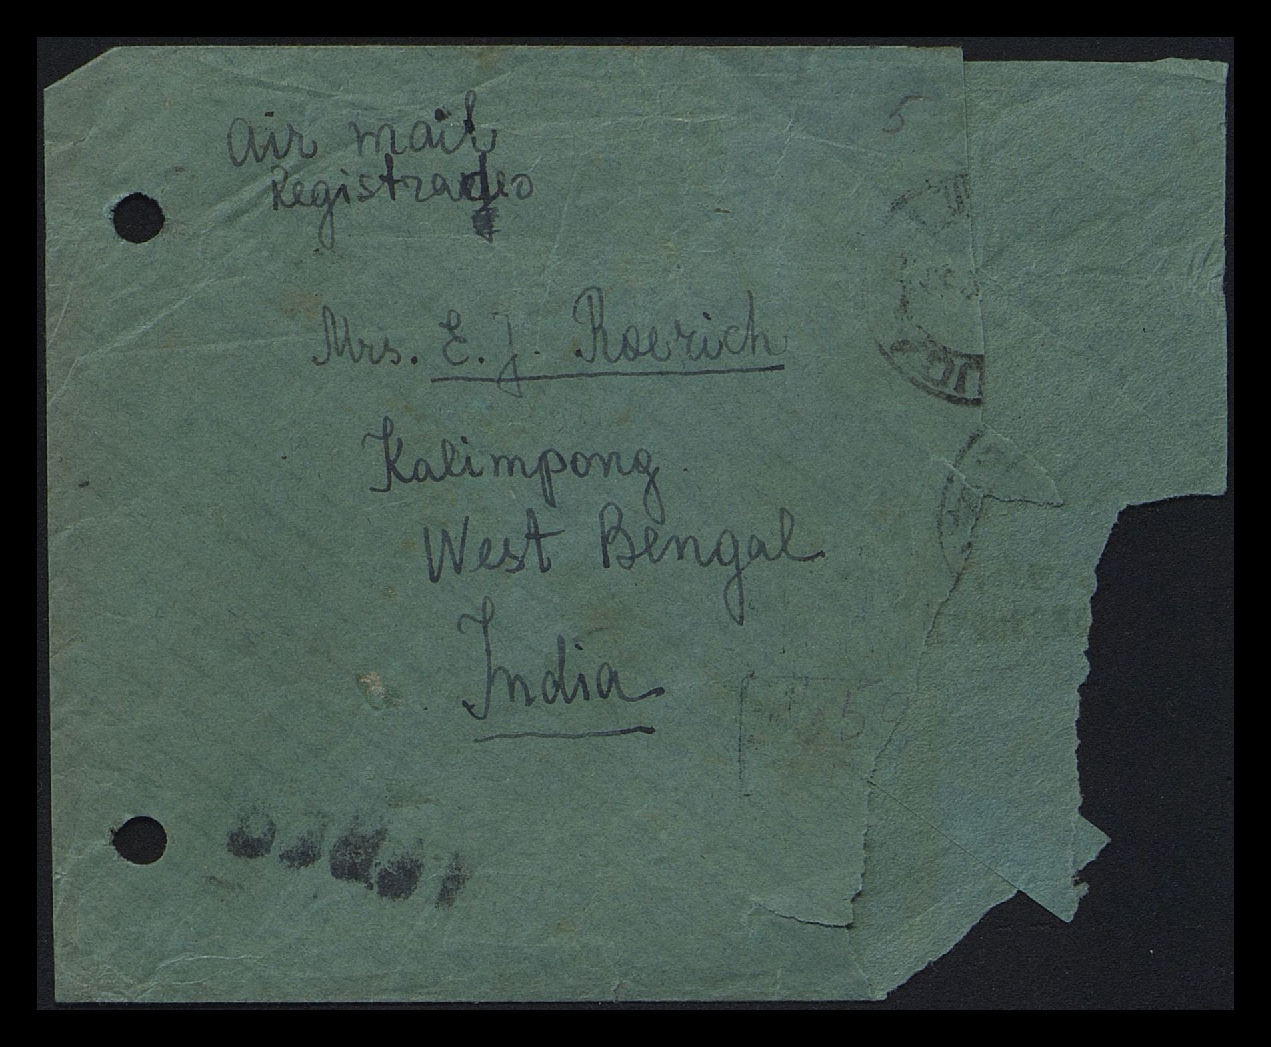 Air mail
Registradeo
5
Mrs. E. J. Roerich
Kalimpong
West Bengal
India